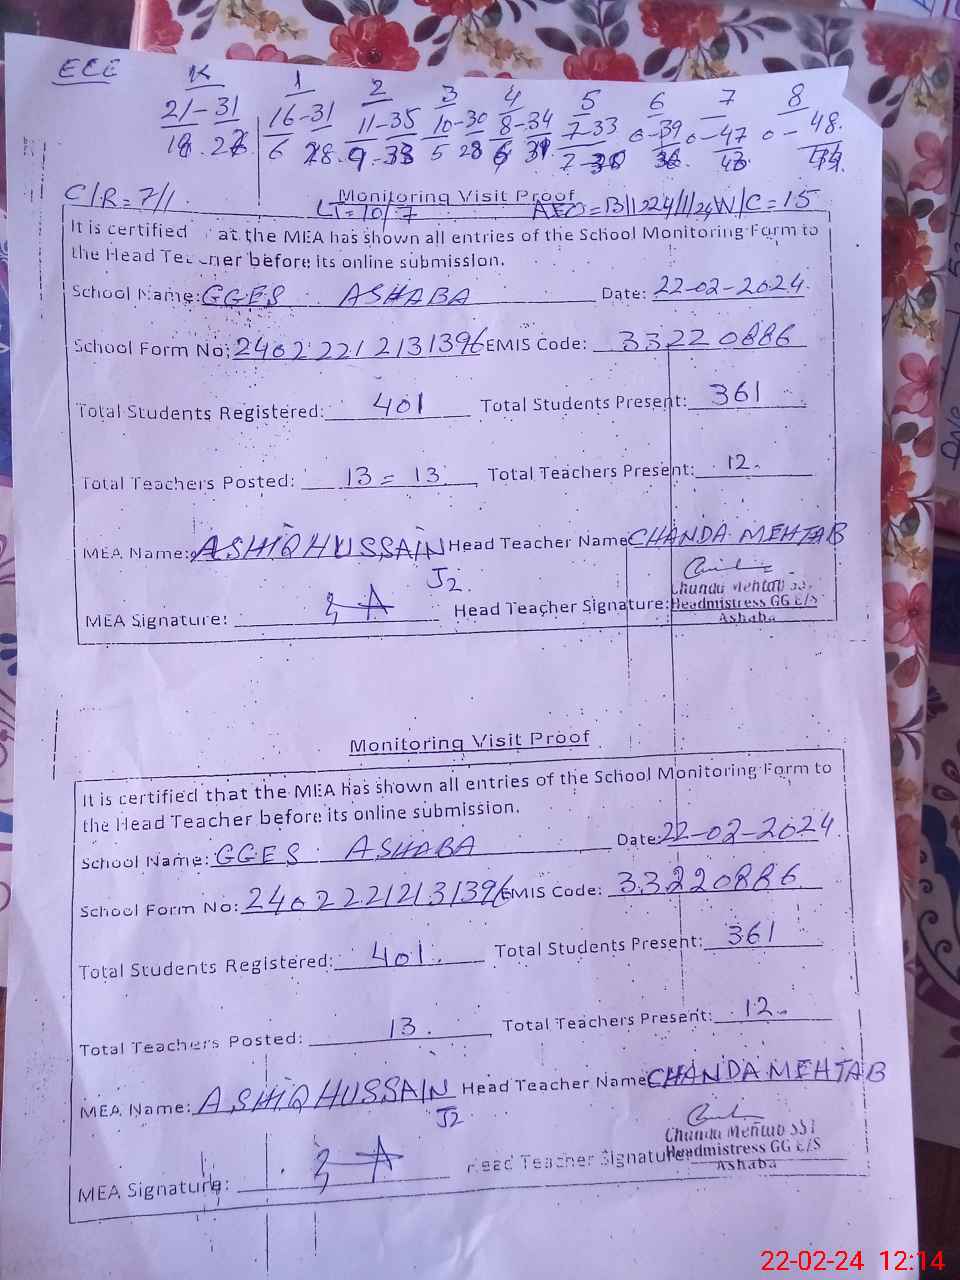 ECE K 1 2 3 4 5 6 7 8
21-31 16-31 11-35 10-30 8-34 7-33 0-39 0-47 0-48.
6 9 5 28
C/R=7/1 Monitoring Visit Proof
LT=10/7 W/C=15
It is certified at the MEA has shown all entries of the School Monitoring Form to
the Head Teacher before its online submission.
School Name: GGES ASHABA Date: 22-02-2024
School Form No: 24022212131396 EMIS Code: 33220886
Total Students Registered: 401 Total Students Present: 361
Total Teachers Posted: 13=13 Total Teachers Present: 12.
MEA Name: ASHIQ HUSSAIN Head Teacher Name CHANDA MEHTAB
J2
MEA Signature: Head Teacher Signature:
Chanda Mehtab SST
Headmistress GG E/S
Ashaba
Monitoring Visit Proof
It is certified that the MEA has shown all entries of the School Monitoring Form to
the Head Teacher before its online submission.
School Name: GGES ASHABA Date: 22-02-2024
School Form No: 24022212131396 EMIS Code: 33220886
Total Students Registered: 401. Total Students Present: 361
Total Teachers Posted: 13. Total Teachers Present: 12.
MEA Name: ASHIQ HUSSAIN Head Teacher Name CHANDA MEHTAB
J2
MEA Signature: Head Teacher Signature:
Chanda Mehtab SST
Headmistress GG E/S
Ashaba
22-02-24 12:14